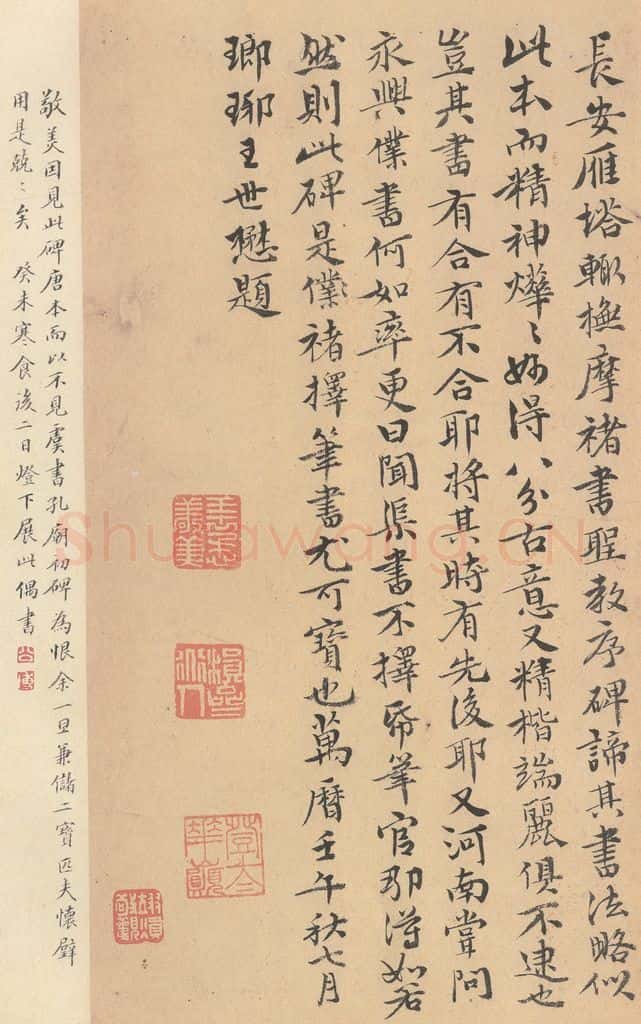 長安雁塔輒撫摩褚書聖教序碑諦其書法略似
此本而精神燁〻妙得八分古意又精楷端麗俱不逮也
豈其書有合有不合耶將其時有先後耶又河南嘗問
永興僕書何如率更曰聞渠書不擇帋筆官那得如若
然則此碑是僕褚擇筆書尤可寶也萬曆壬午秋七月
瑯琊王世懋題
敬美因見此碑唐本而以不見虞書孔廟初碑為恨余一旦兼儲二寶匹夫懷璧
用是兢〻矣 癸未寒食後二日燈下展此偶書
Shufawang.CN